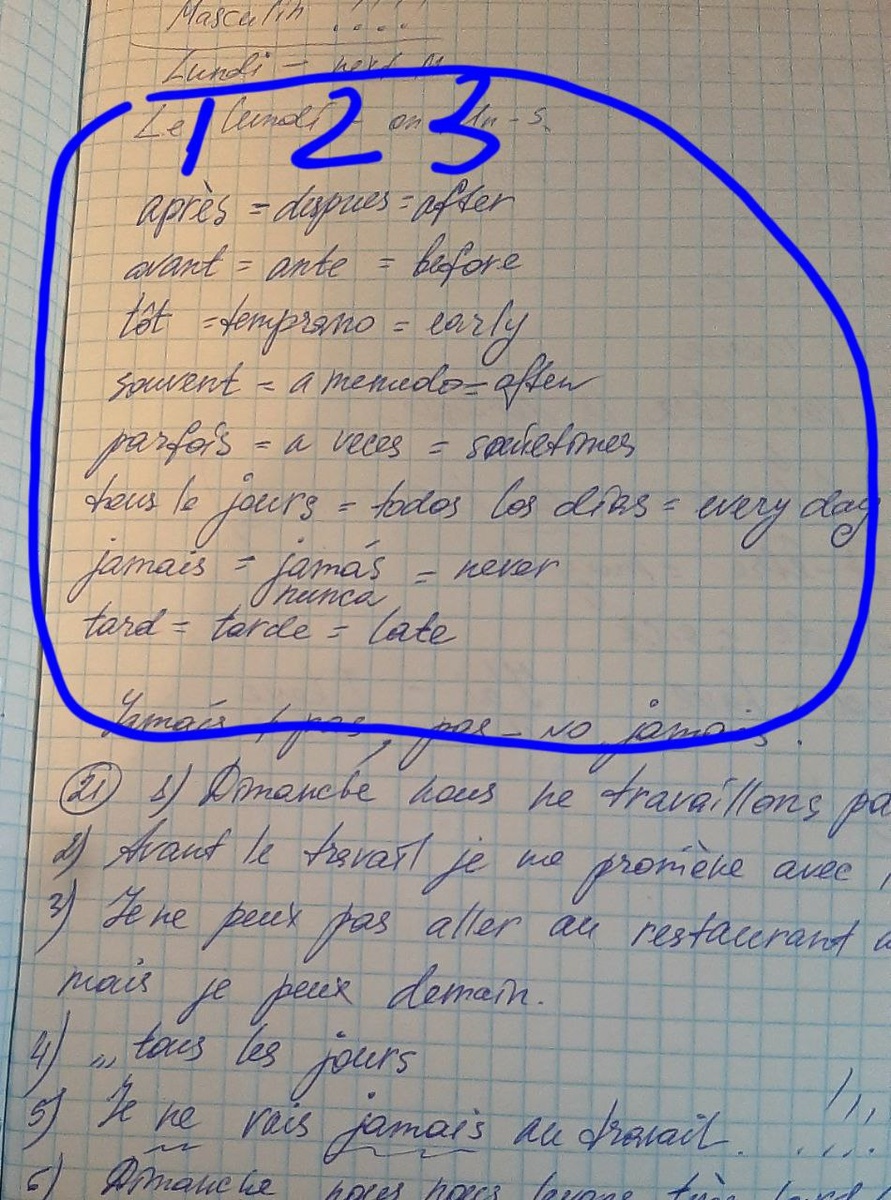 Masculin !!!!
Lundi - next M
Le lundi - on Mn-s.
1 2 3
après = despues = after
avant = ante = before
tôt = temprano = early
souvent = a menudo = often
parfois = a veces = sometimes
tous le jours = todos los dias = every day
jamais = jamás = never
nunca
tard = tarde = late
Jamais + pas, pas - no jamais!
21 1) Dimanche nous ne travaillons pa
2) Avant le travail je me promène avec
3) Je ne peux pas aller au restaurant a
mais je peux demain.
4) „ tous les jours
5) Je ne vais jamais au travail. !!!
6) Dimanche nous nous levons très tard